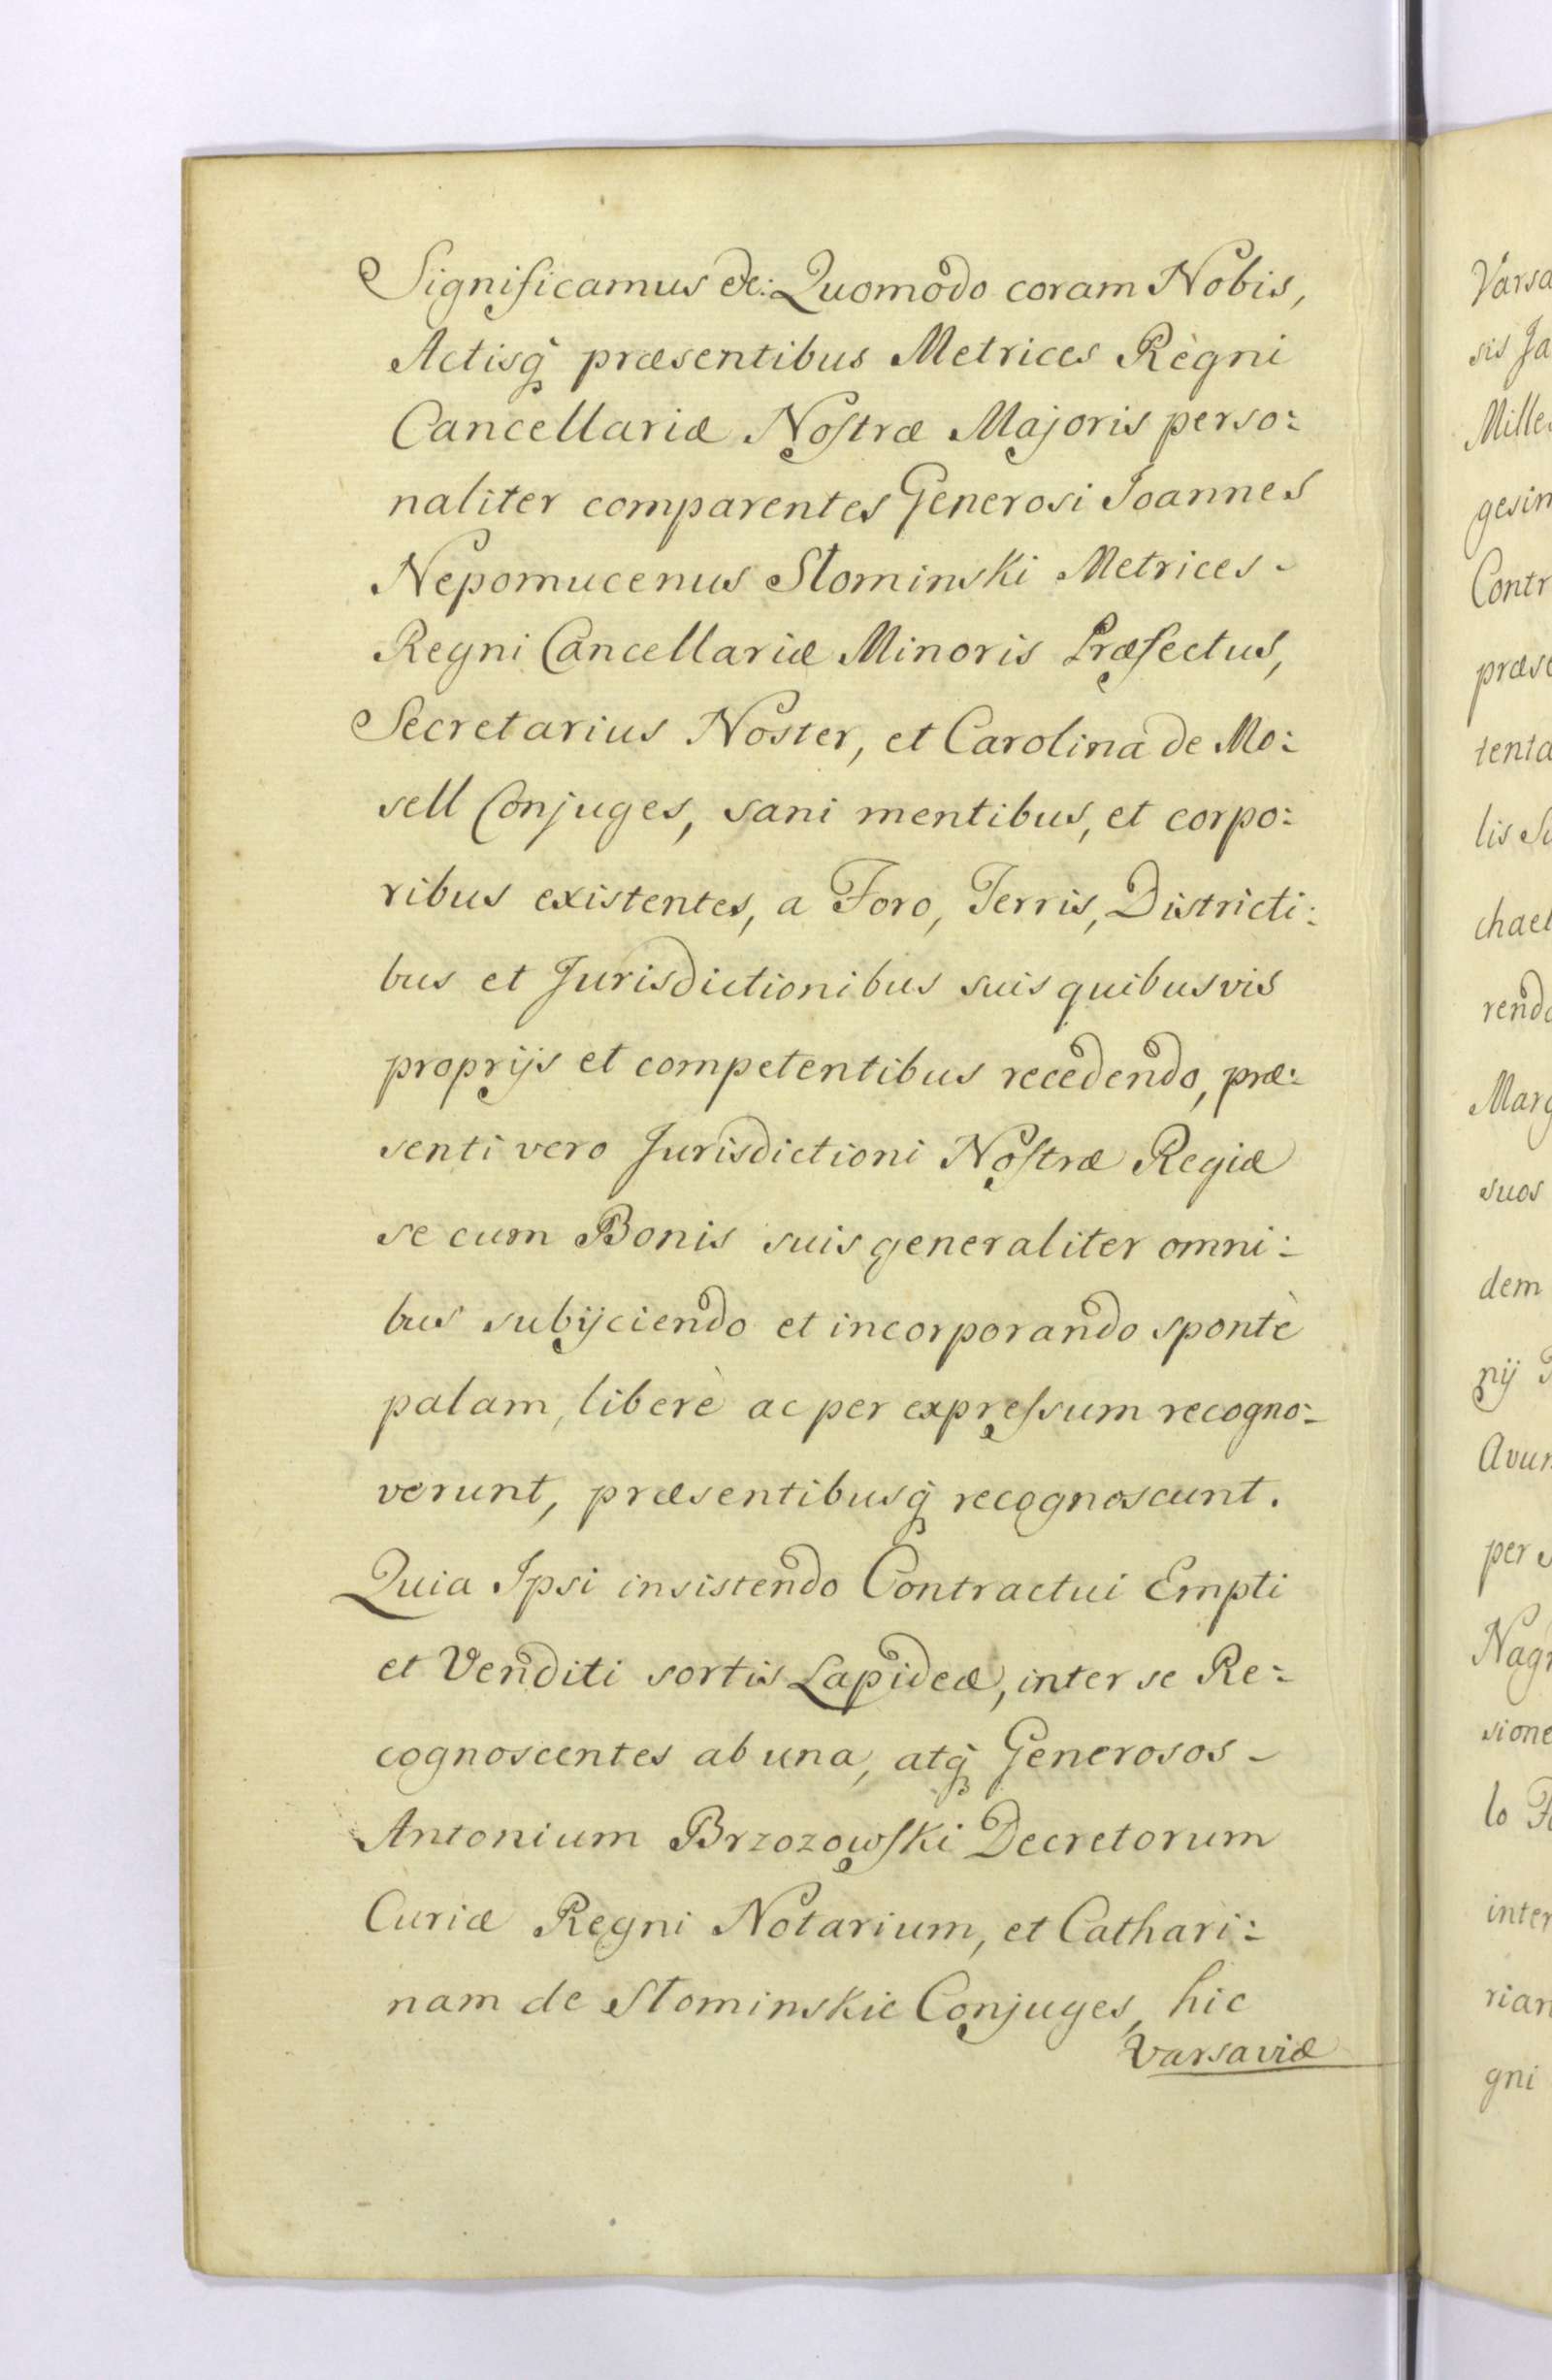 Significamus &c: Quomodo coram Nobis,
Actisq̃ præsentibus Metrices Regni
Cancellariæ Nostræ Majoris perso:
naliter comparentes Generosi Joannes
Nepomucenus Słominski Metrices
Regni Cancellariæ Minoris Præfectus,
Secretarius Noster, et Carolina de Mo:
sell Conjuges, sani mentibus, et corpo:
ribus existentes, a Foro, Terris, Districti:
bus et Jurisdictionibus suis quibusvis
proprijs et competentibus recedendo, præ:
senti vero Jurisdictioni Nostræ Regiæ
se cum Bonis suis generaliter omni:
bus subijciendo et incorporando spontè
palam, liberè ac per expressum recogno:
verunt, præsentibusq̃ recognoscunt.
Quia Ipsi insistendo Contractui Empti
et Venditi sortis Lapideæ, inter se Re:
cognoscentes ab una, atq̃ Generosos
Antonium Brzozowski Decretorum
Curiæ Regni Notarium, et Cathari:
nam de Słominskie Conjuges, hic
Varsaviæ
Varsa
sis Ja
Mille
gesim
Contr
præse
tenta
lis Su
chael
rendo
Marg
suos
dem
nij
Avun
per
Nagr
sione
lo
inter
rian
gni